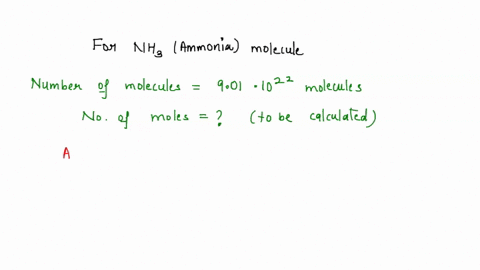 For NH₃ (Ammonia) molecule
Number of molecules = 9.01 · 10²² molecules
No. of moles = ? (to be calculated)
A